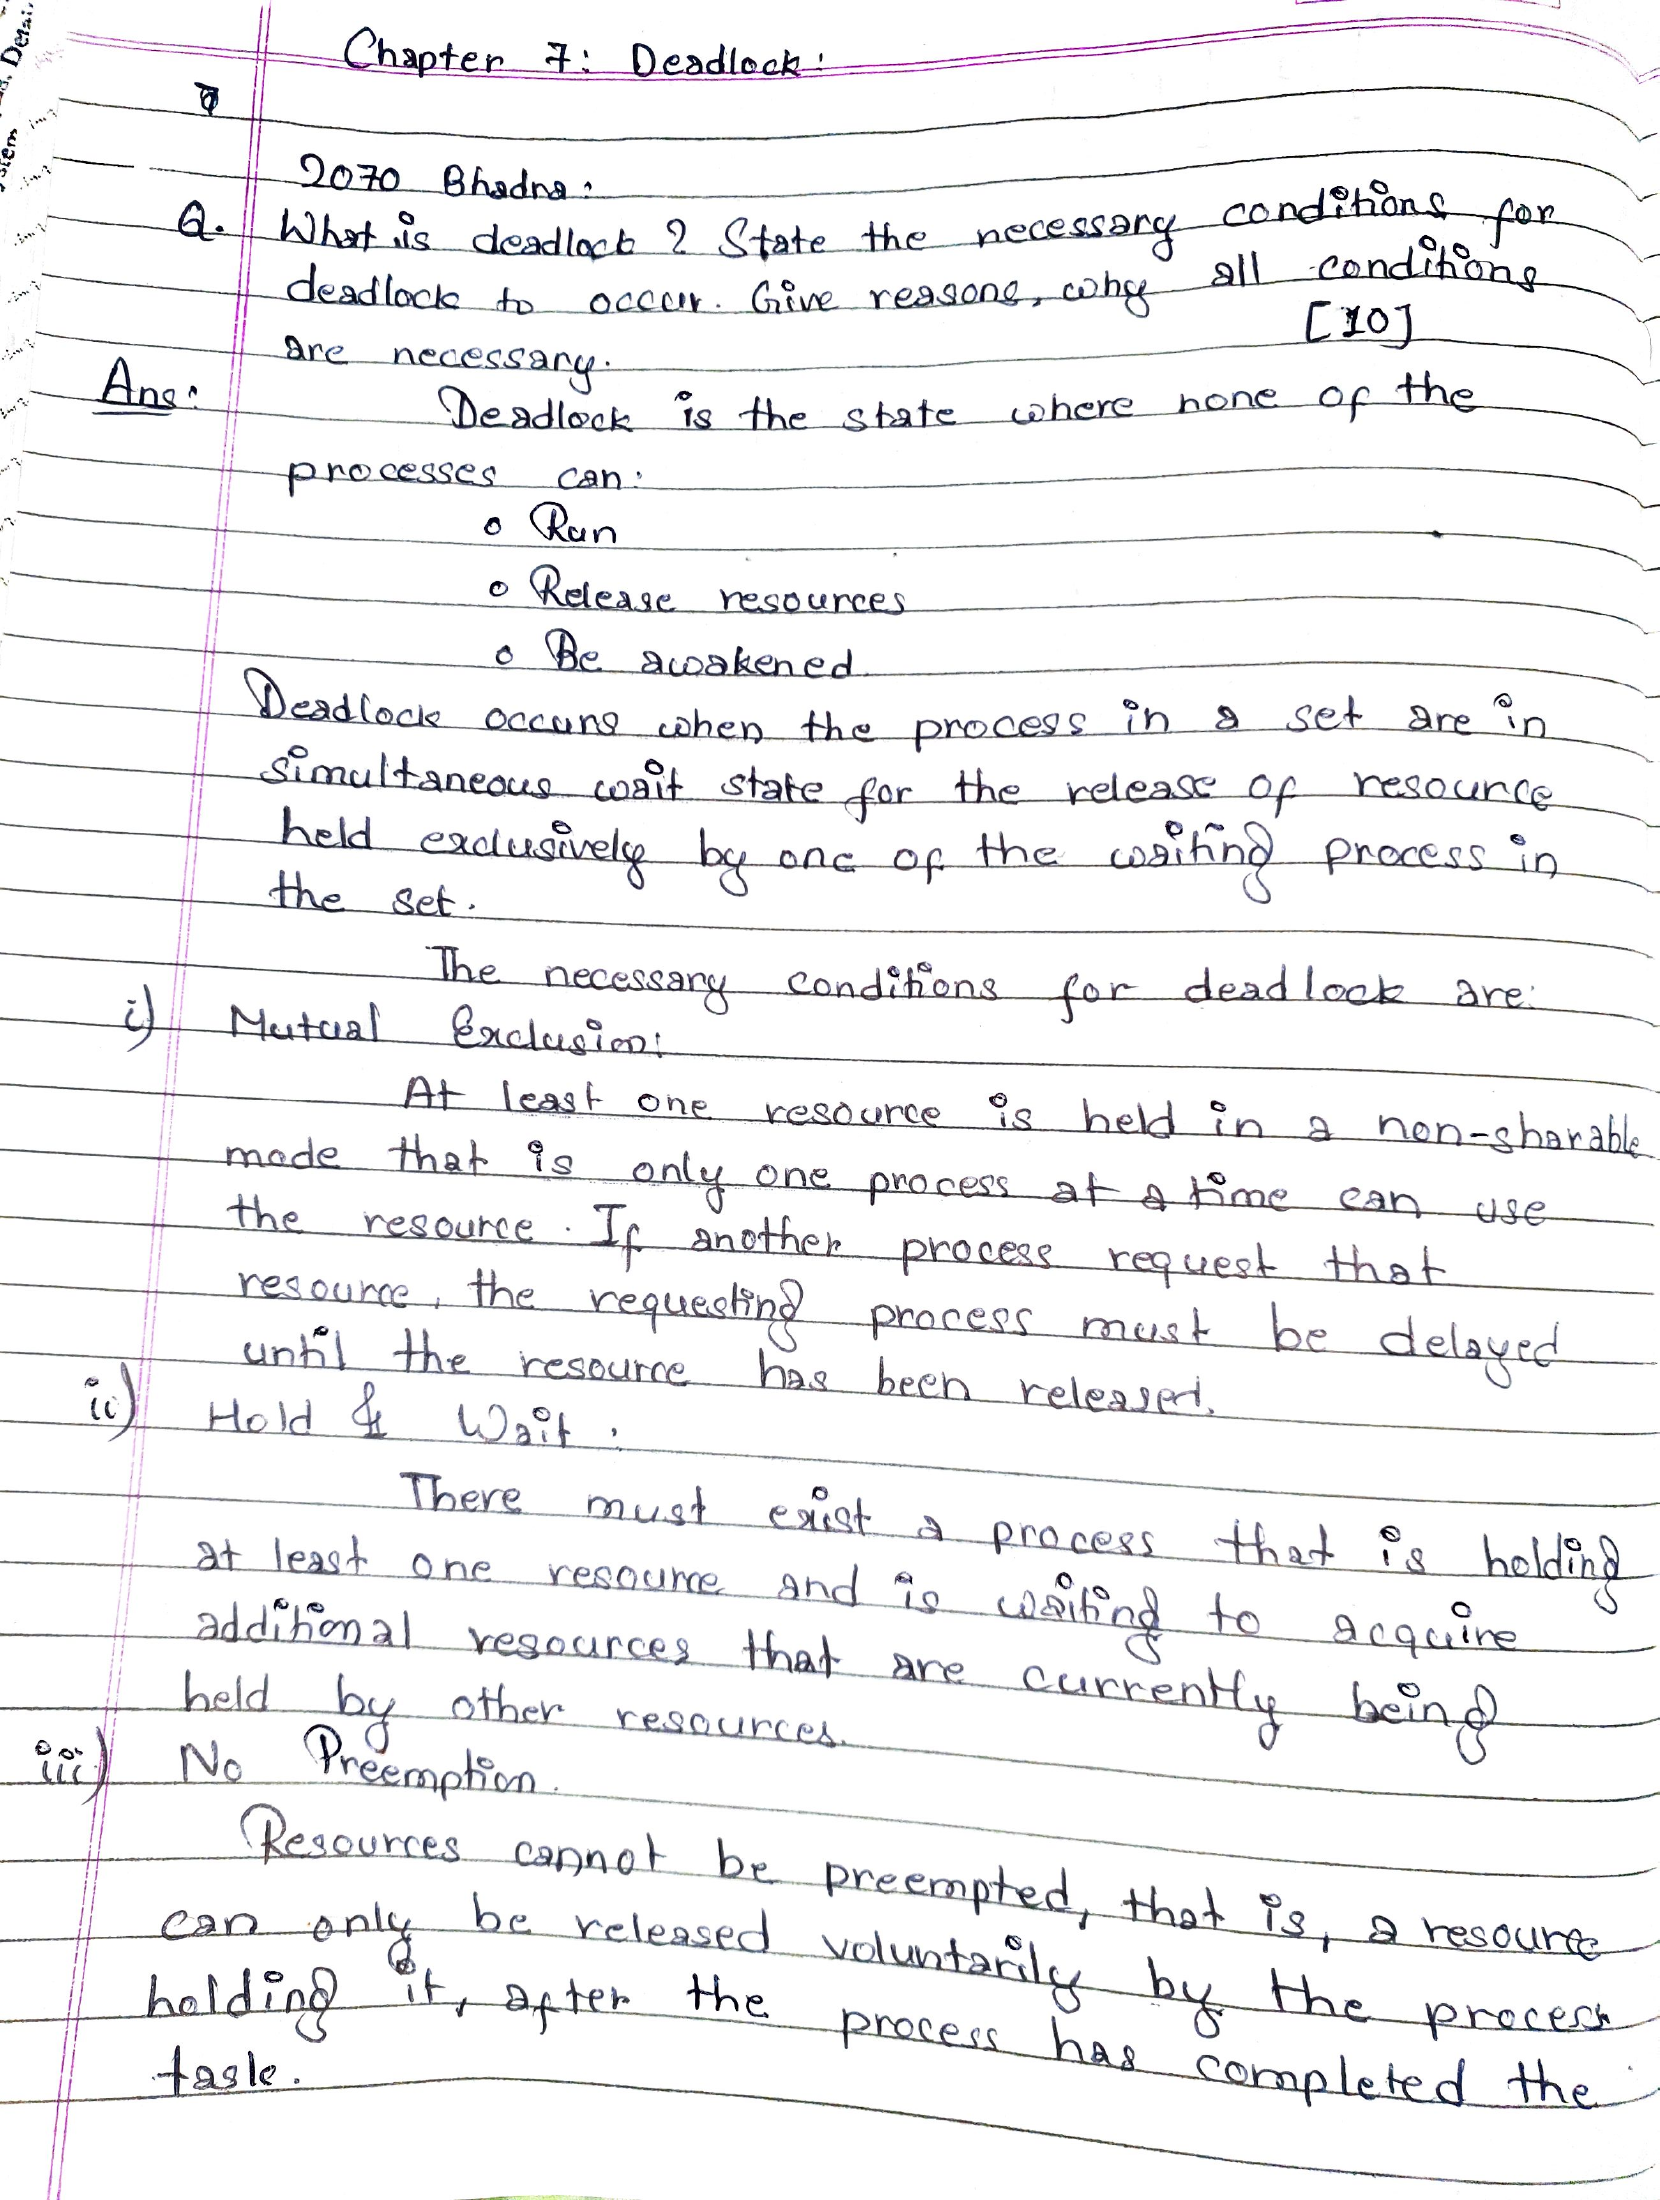 Chapter 7: Deadlock:
2070 Bhadra:
Q. What is deadlock? State the necessary conditions for
deadlock to occur. Give reasons, why all conditions
are necessary. [10]
Ans: Deadlock is the state where none of the
processes can:
o Run
o Release resources
o Be awakened
Deadlock occurs when the process in a set are in
simultaneous wait state for the release of resource
held exclusively by one of the waiting process in
the set.
The necessary conditions for deadlock are:
i) Mutual Exclusion:
At least one resource is held in a non-sharable
mode that is only one process at a time can use
the resource. If another process request that
resource, the requesting process must be delayed
until the resource has been released.
ii) Hold & Wait:
There must exist a process that is holding
at least one resource and is waiting to acquire
additional resources that are currently being
held by other resources.
iii) No Preemption.
Resources cannot be preempted, that is, a resource
can only be released voluntarily by the process
holding it, after the process has completed the
task.